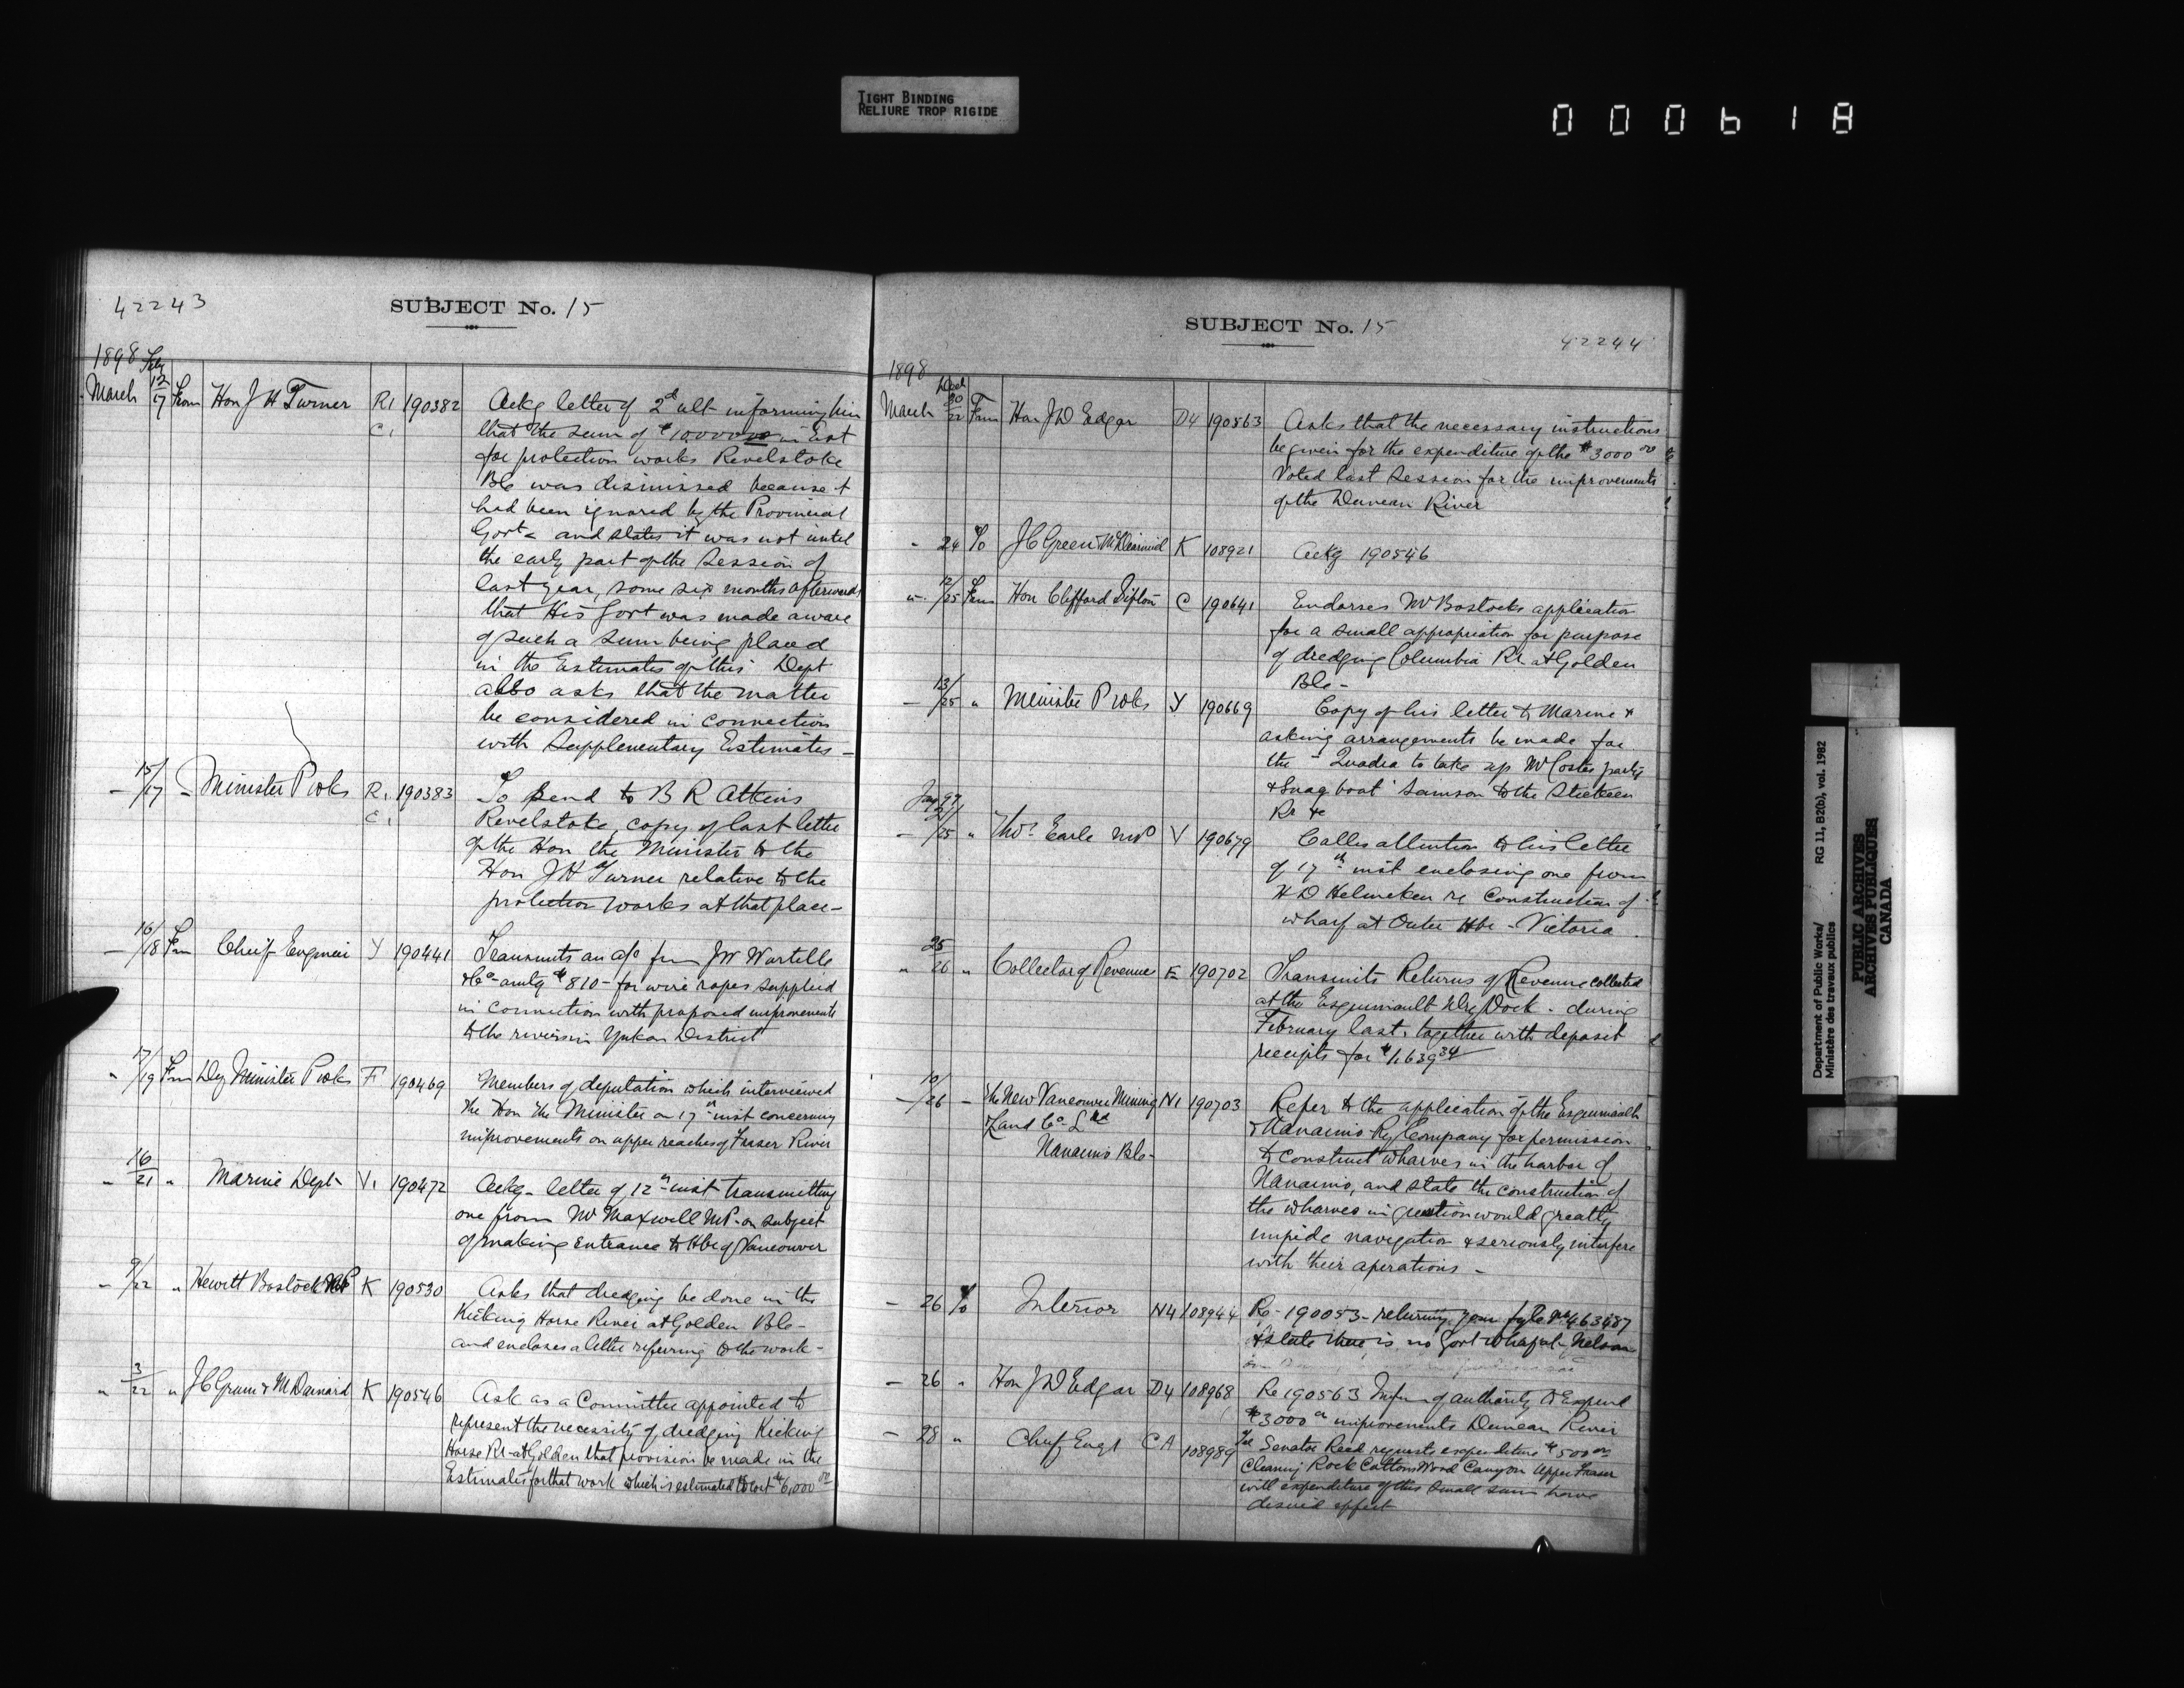 TIGHT BINDING
RELIURE TROP RIGIDE
000618
42243
SUBJECT No. 15
1898 Feby
March 12/17 From Hon J H Turner R1 190382 Ackg letter of 2d ult informing him
C1 that the sum of $10,000.00 in Est
for protection works Revelstoke
BC was dismissed because it
had been ignored by the Provincial
Govt - and states it was not until
the early part of the Session of
last year, some six months afterwards
that His Govt was made aware
of such a sum being placed
in the Estimates of this Dept
also asks that the matter
be considered in connection
with Supplementary Estimates -
- 15/17 - Minister P Wks R1 190383 To send to B R Atkins
C1 Revelstoke, copy of last letter
of the Hon the Minister to the
Hon J H Turner relative to the
protection works at that place -
- 16/18 Fm Chief Engineer Y 190441 Transmits an a/c from JW Wurtelle
& Co - amtg $810 - for wire ropes supplied
in connection with proposed improvements
to the rivers in Yukon District
" 17/19 Fm Dy Minister P Wks F 190469 Members of deputation which interviewed
the Hon the Minister on 17th inst concerning
improvements on upper reaches of Fraser River
" 16/21 " Marine Dept V1 190472 Ackg - letter of 12th inst transmitting
one from Mr Maxwell MP - on subject
of making entrance to Hbr of Vancouver
" 9/22 " Hewitt Bostock MP K 190530 Asks that dredging be done in the
Kicking Horse River at Golden BC -
and encloses a letter referring to the work -
" 3/22 " J C Green & M Dainard K 190546 Ask as a Committee appointed to
represent the necessity of dredging Kicking
Horse Rr - at Golden that provision be made in the
Estimates for that work which is estimated to cost $6,000.00
SUBJECT No. 15
42244
1898
March 30/22 From Hon J D Edgar D4 190563 Asks that the necessary instructions
be given for the expenditure of the $3000.00
Voted last Session for the improvements
of the Duncan River
" 24 To J C Green & M Dainard K 108921 Ackg 190546
" 12/25 From Hon Clifford Sifton C 190641 Endorses Mr Bostocks application
for a small appropriation for purpose
of dredging Columbia Rr at Golden
BC -
- 13/25 " Minister P Wks Y 190669 Copy of his letter to Marine &
asking arrangements be made for
the "Quadra to take up Mr Costes party
& Snag boat "Samson to the Stickeen
Rr &c
- 21/25 " Thos Earle MP V 190679 Calls attention to his letter
of 17th inst enclosing one from
H D Helmcken re Construction of
wharf at Outer Hbr - Victoria
" 25/26 " Collector of Revenue E 190702 Transmits Returns of Revenue collected
at the Esquimault Dry Dock - during
February last, together with deposit
receipts for $1,639.34
- 10/26 - The New Vancouver Mining N1 190703 Refer to the application of the Esquimault
Land Co Ltd & Nanaimo Ry Company for permission
Nanaimo BC - to construct wharves in the harbor of
Nanaimo, and state the construction of
the wharves in question would greatly
impede navigation & seriously interfere
with their operations -
- 26 To Interior N4 108944 Re - 190053 - returning your fyle No 463487
& state there is no Govt wharf at Nelson
- 26 " Hon J D Edgar D4 108968 Re 190563 Infm of authority to Expend
$3000 on improvements Duncan River
- 28 " Chief Engr CA 108989 Tel Senator Reed requests expenditure $500.00
Clearing Rock Cottonwood Canyon Upper Fraser
will expenditure of this Small sum have
desired effect
Department of Public Works/
Ministère des travaux publics
RG 11, B2(b), vol. 1982
PUBLIC ARCHIVES
ARCHIVES PUBLIQUES
CANADA